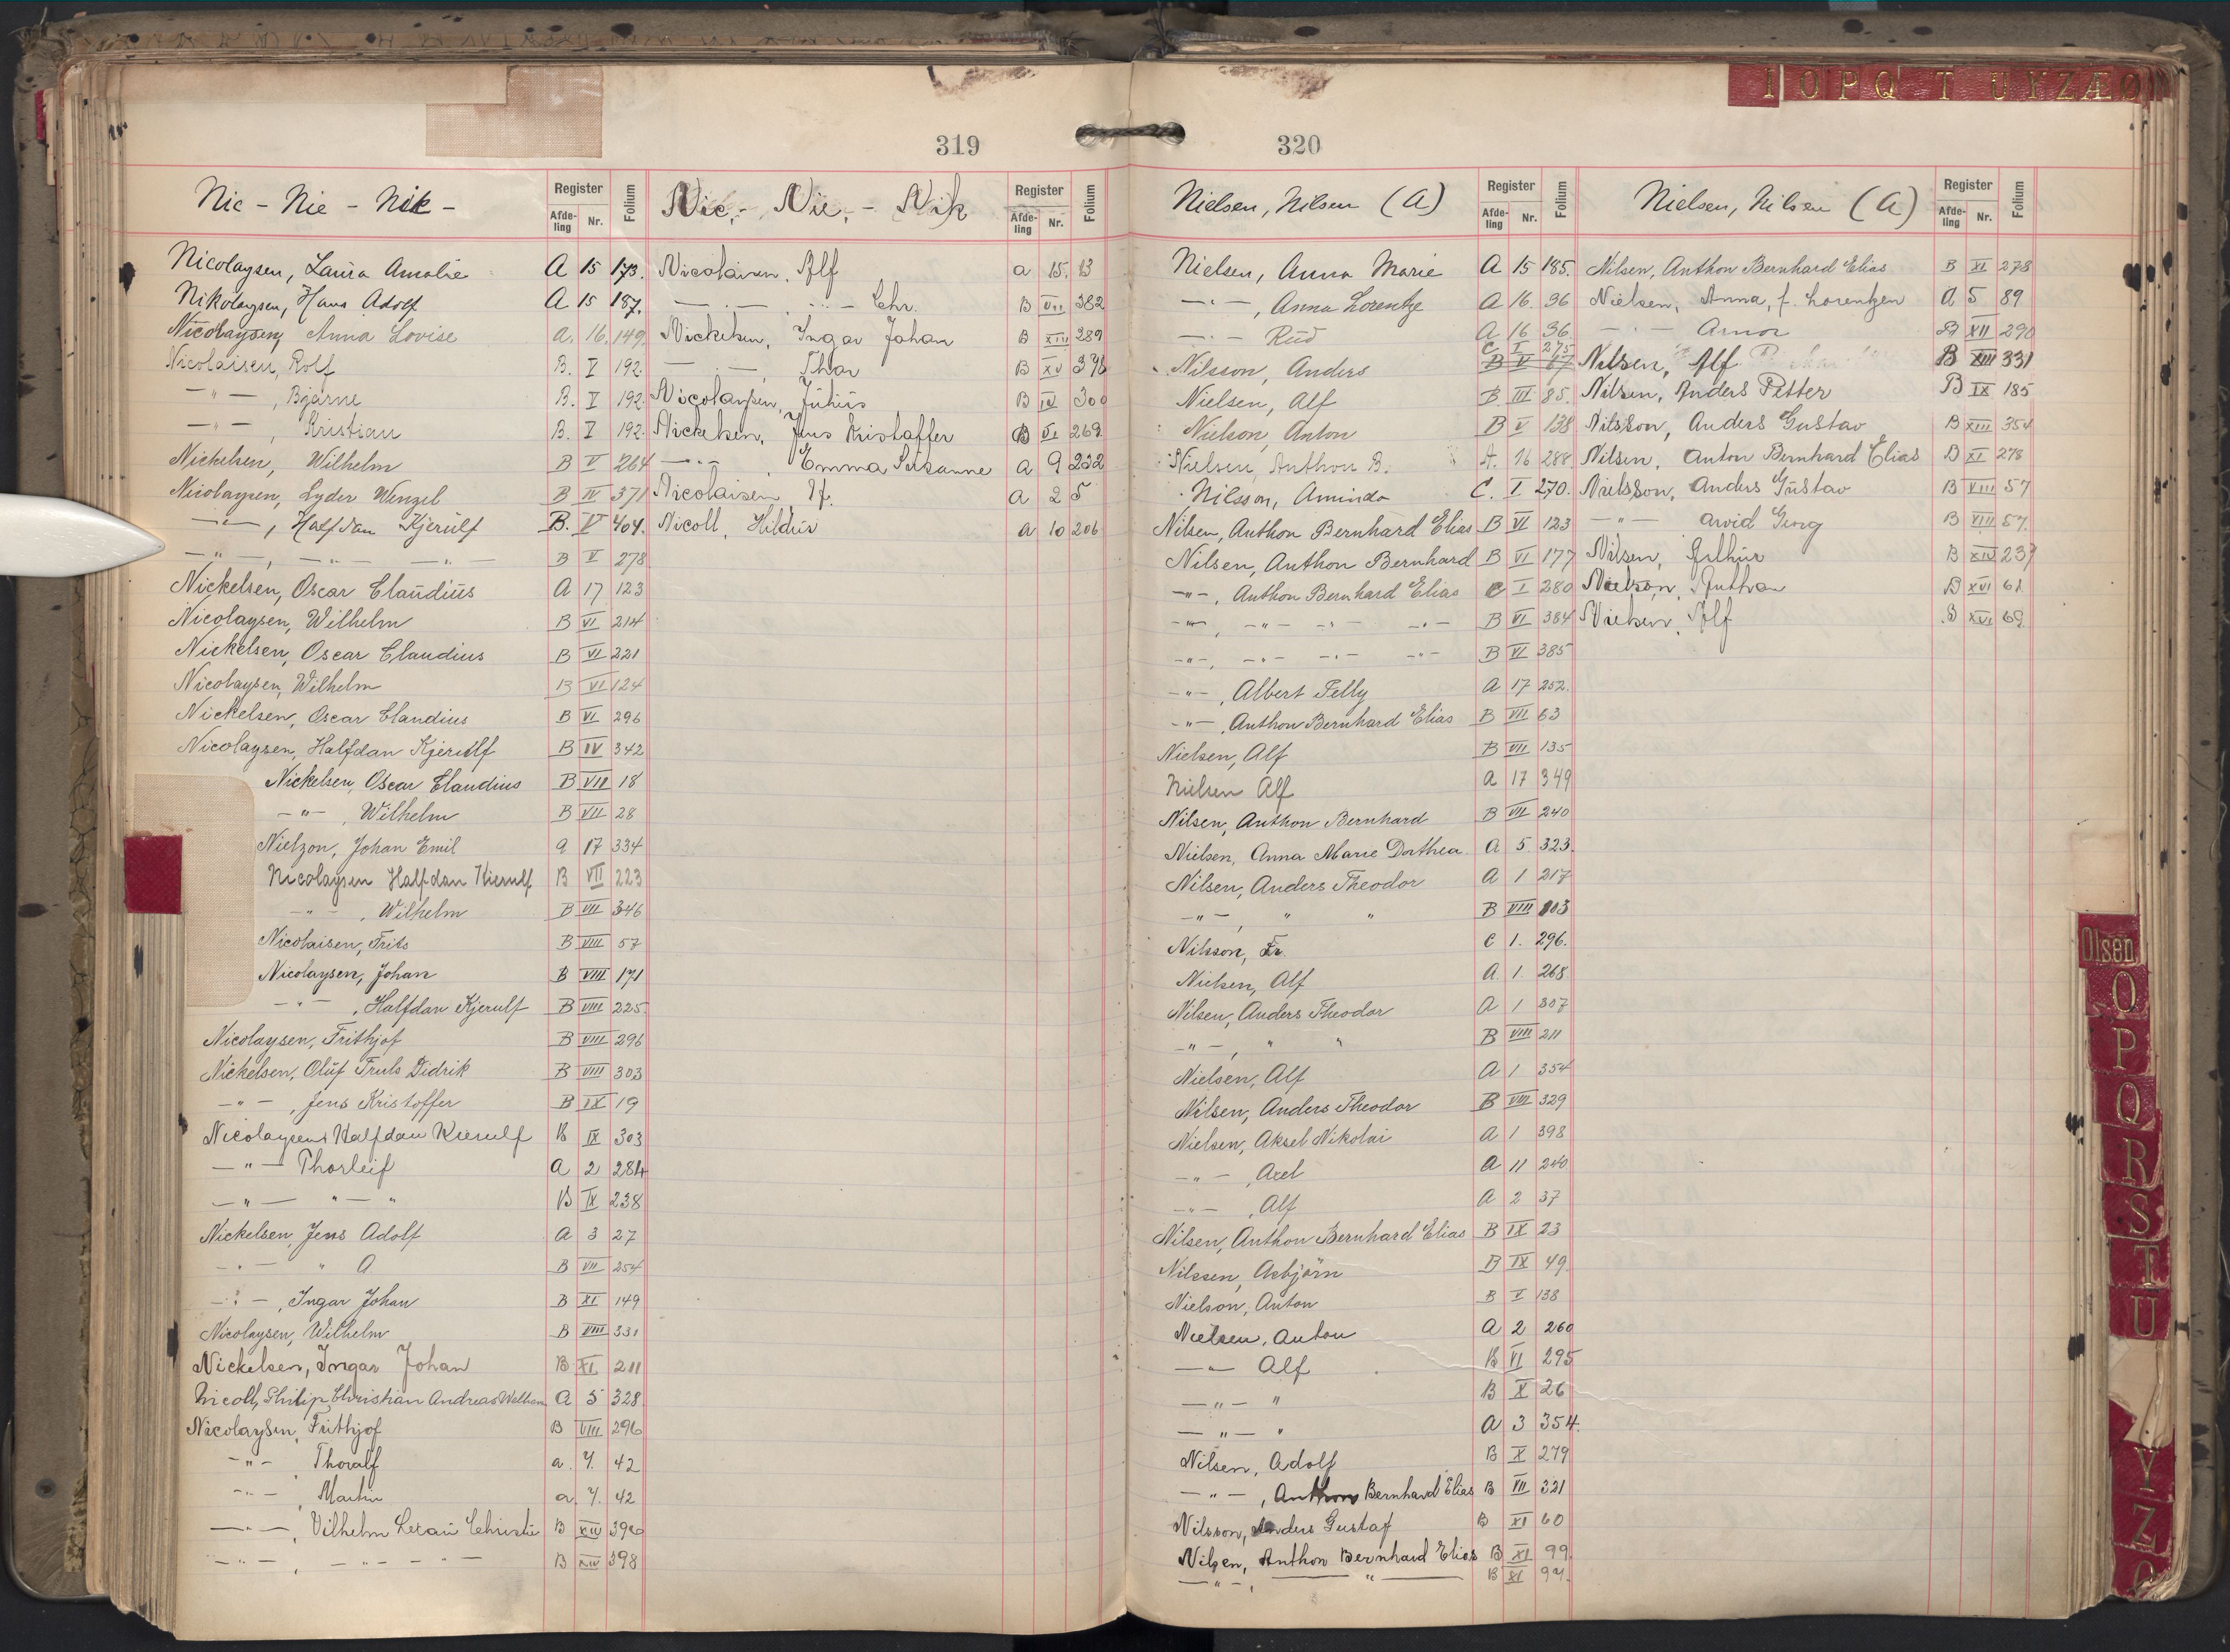 319
Nic - Nie - Nik -
Register
Afde-ling
Nr.
Folium
Nicolaysen, Laura Amalie A 15 173.
Nikolaysen, Hans Adolf A 15 187.
Nicolaysen, Anna Lovise A. 16. 149.
Nicolaisen, Rolf B. V 192.
—"—, Bjarne B. V 192.
—"—, Kristian B. V 192.
Nickelsen, Wilhelm B V 264
Nicolaysen, Lyder Wenzel B IV 371
—"—, Halfdan Kjerulf B. V 404.
—"—, —"— —"— B V 278
Nickelsen, Oscar Claudius A 17 123
Nicolaysen, Wilhelm B VI 214
Nickelsen, Oscar Claudius B VI 221
Nicolaysen, Wilhelm B VI 124
Nickelsen, Oscar Claudius B VI 296
Nicolaysen, Halfdan Kjerulf B IV 342
Nickelsen, Oscar Claudius B VII 18
—"—, Wilhelm B VII 28
Nielzon, Johan Emil a 17 334
Nicolaysen Halfdan Kierulf B VII 223
—"—, Wilhelm B VII 346
Nicolaisen, Frits B VIII 57
Nicolaysen, Johan B VIII 171
—"—, Halfdan Kjerulf B VIII 225
Nicolaysen, Frithjof B VIII 296
Nickelsen, Oluf Truls Didrik B VIII 303
—"—, Jens Kristoffer B IX 19
Nicolaysen, Halfdan Kierulf B IX 303
—"— Thorleif A 2 284
—"— "—" B IX 238
Nickelsen, Jens Adolf A 3 27
—"— " A B VII 254
—"—, Ingar Johan B XI 149
Nicolaysen, Wilhelm B VIII 331
Nickelsen, Ingar Johan B XI 211
Nicoll, Philip Christian Andreas A 5 328
Nicolaysen, Frithjof B VIII 296
—"— Thoralf a. 7. 42
—"—, Martin a. 7. 42
—"—, Vilhelm Christie B XIV
—"—, —"—"— B XIV 398
Nic, - Nie, - Nik
Register
Afde-ling
Nr.
Folium
Nicolaisen, Alf a 15. 13
—"— Chr. B VII 382
Nickelsen, Ingar Johan B XIII 289
—"—, Thor B XV
Nicolaysen, Julius B IV
Nickelsen, Jens Kristoffer B VI 269
—"—, Emma Susanne a 9 232
Nicolaisen, a 2 5
Nicoll, Hildur a 10 206
320
Nielsen, Nilsen (A)
Register
Afde-ling
Nr.
Folium
Nielsen, Anna Marie A 15 185.
—"—, Anna Lorentze A 16. 36
—"— Rud A 16 36
C I 275
Nilsson, Anders B V 67
Nielsen, Alf B III 85.
Nielson, Anton B V 138
Nielsen, Anthon B. A. 16 288
Nilsson, Aminda C. I 270.
Nilsen, Anthon Bernhard Elias B VI 123
Nilsen, Anthon Bernhard B VI 177
—"—, Anthon Bernhard Elias C I 280
—"—, —"— —"— —"— B VI 384
—"—, —"— —"— —"— B VI 385
—"—, Albert Felly A 17 252.
—"—, Anthon Bernhard Elias B VII 63
Nielsen, Alf B VII 135
Nielsen Alf a 17 349
Nilsen, Anthon Bernhard B VII 240
Nielsen, Anna Marie Dorthea A 5. 323.
Nilsen, Anders Theodor A 1 217
—"—, " " B VIII 103
Nilsson, Fr. C 1. 296.
Nielsen, Alf A. 1. 268.
Nilsen, Anders Theodor A 1 307
—"—, " " B VIII 211
Nielsen, Alf A 1 354
Nilsen, Anders Theodor B VIII 329
Nielsen, Aksel Nikolai A 1 398
—"—, Axel A 11 240
—"—, Alf A 2 37
Nilsen, Anthon Bernhard Elias B IX 23
Nilssen, Asbjörn B IX 49.
Nielson, Anton B V 138
Nielsen, Anton A 2 260
—"— Alf B VI 295
—"— " B X 26
—"— " A 3 354.
Nilsen, Adolf B X 279
—"—, Anthon Bernhard Elias B VII 321
Nilsson, Anders Gustaf B XI 60
Nilsen, Anthon Bernhard Elias B XI 99.
—"—, —"— B XI 94.
Nielsen, Nilsen (A)
Register
Afde-ling
Nr.
Folium
Nilsen, Anthon Bernhard Elias B XI 278
Nielsen, Anna, f. Lorentzen A 5 89
—"— Arnor B XII 290
Nilsen, Alf B XIII 331
Nilsen, Anders Petter B IX 185
Nilsson, Anders Gustav B XIII 354
Nilsen, Anton Bernhard Elias B XI 278
Nielsson, Anders Gustav B VIII 57
—"— Arvid Georg B VIII 57.
Nilsen, Arthur B XIV 237
Nielsen, B XVI 61
Nielsen, Alf B XVI 69
I O P Q T U Y Z Æ Ø
Olsen
O
P
Q
R
S
T
U
Y
Z